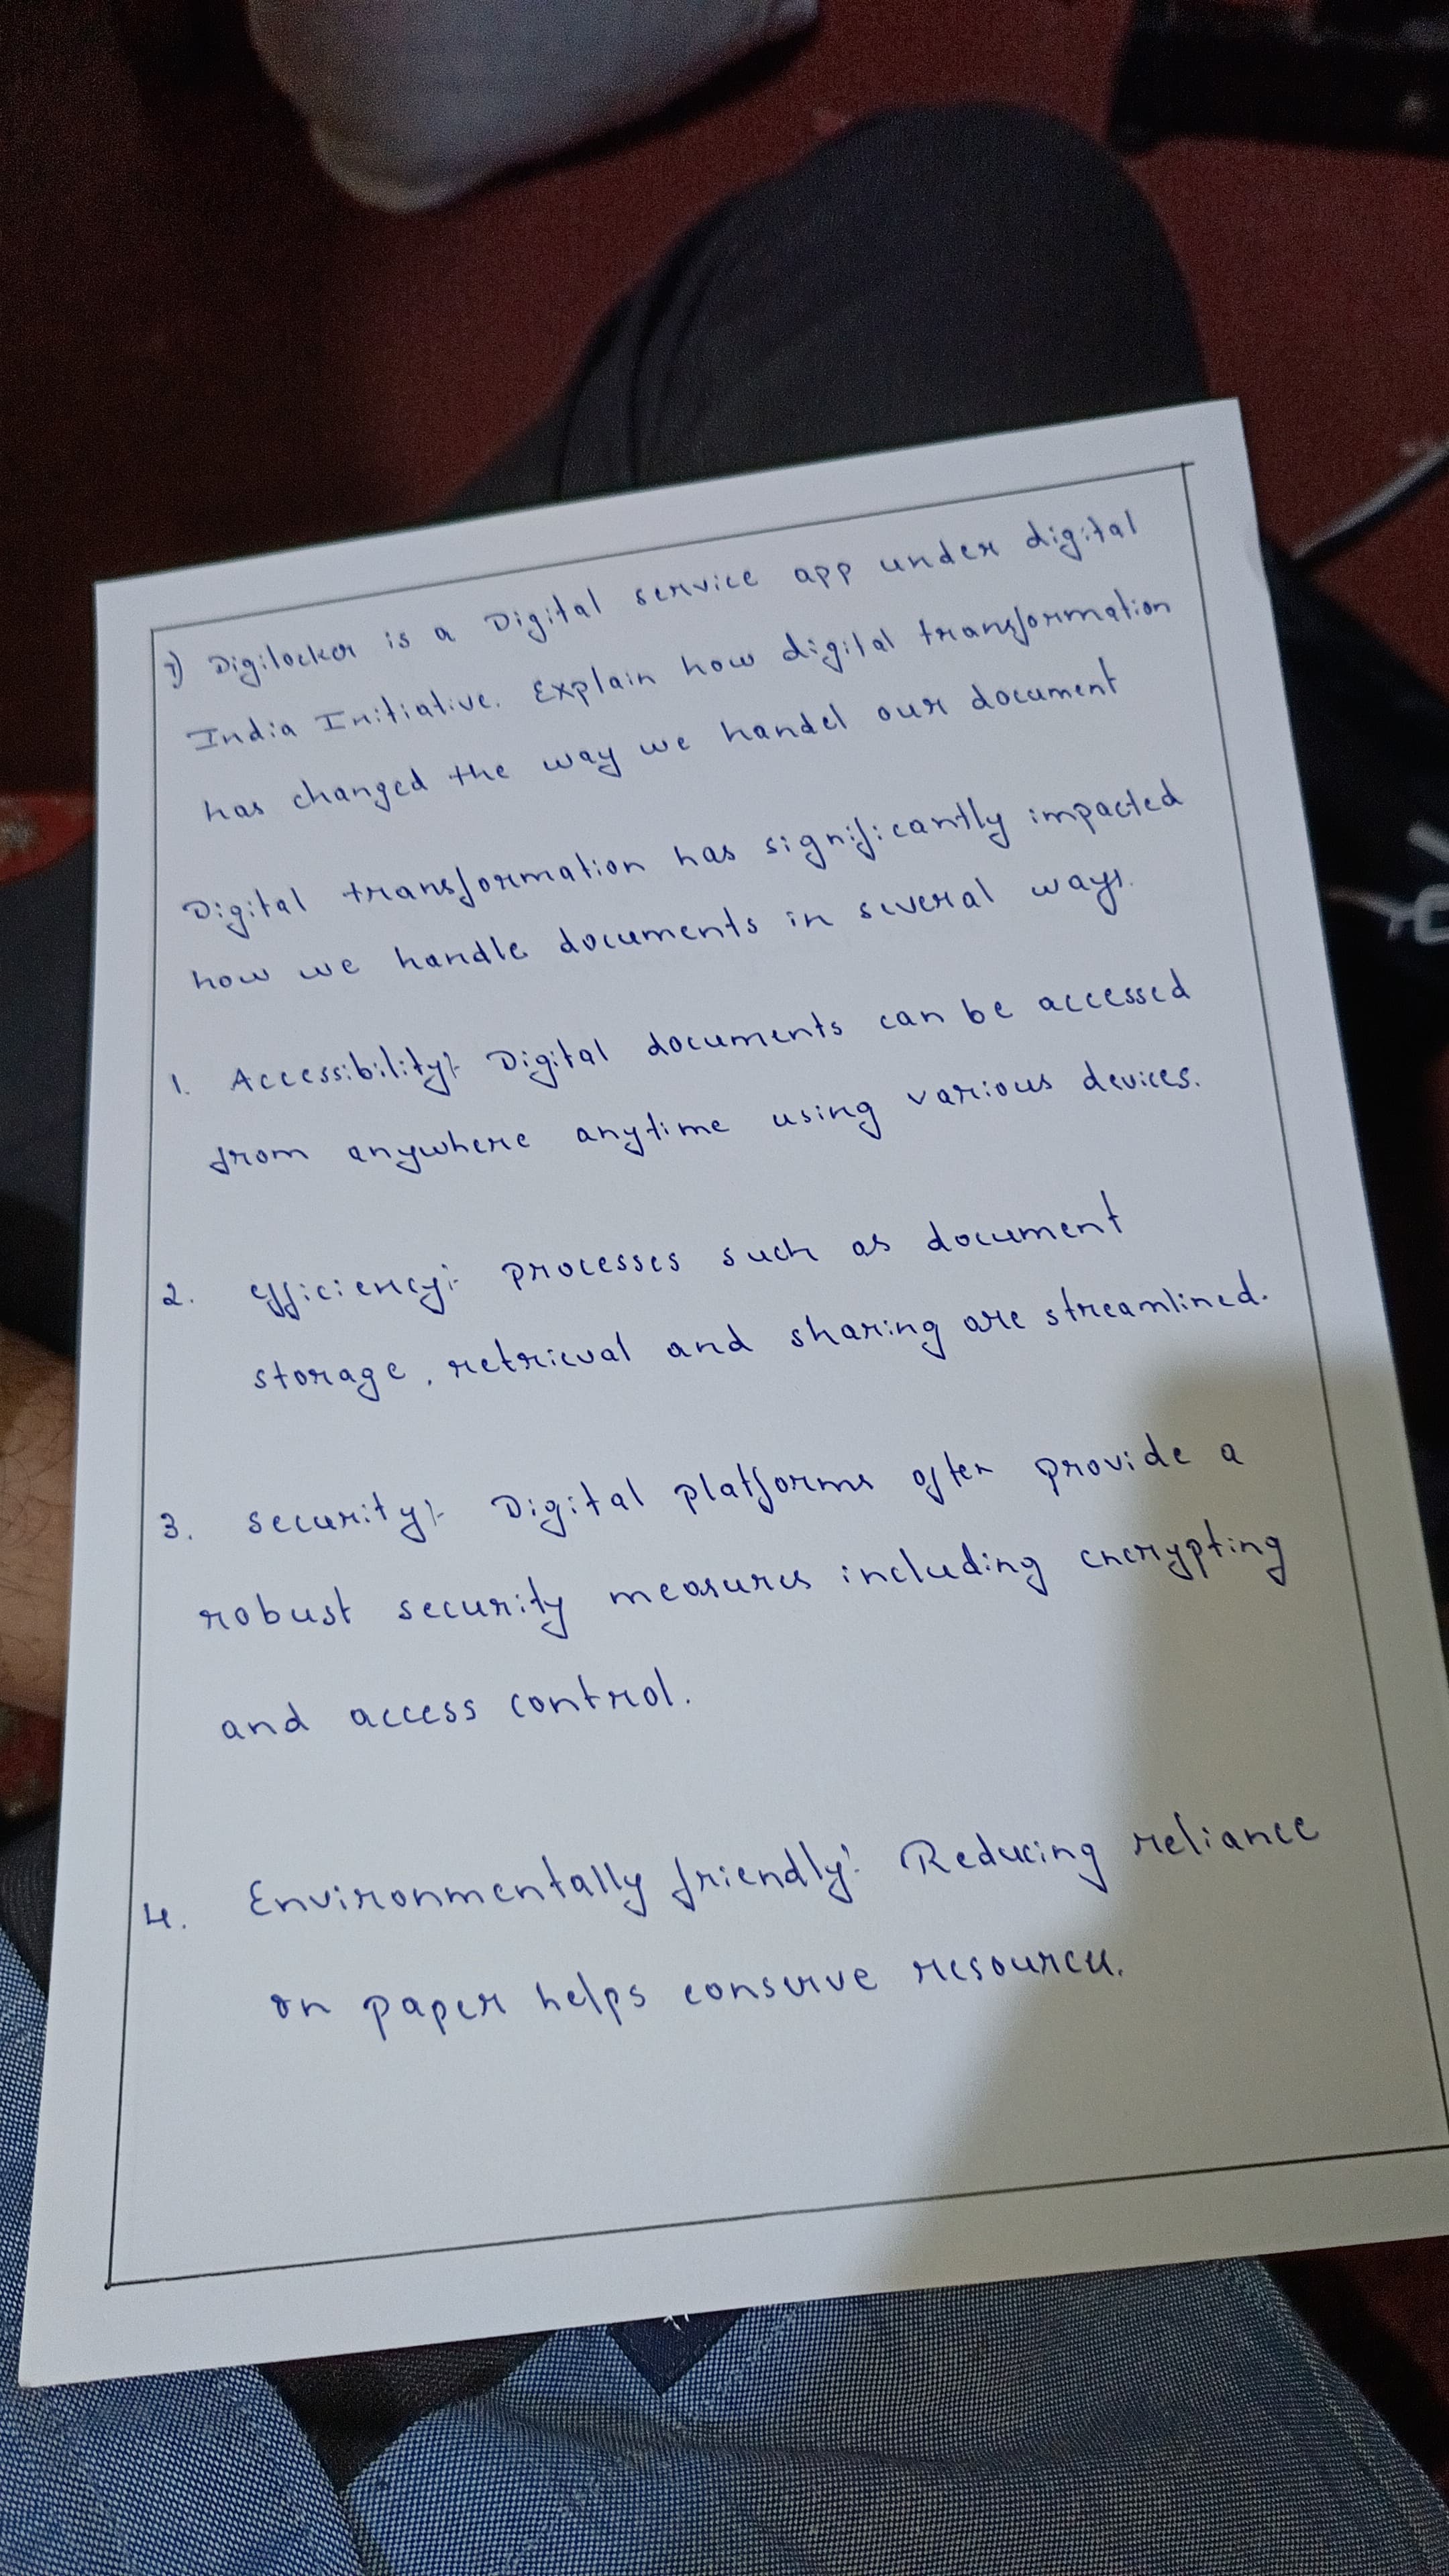 1) Digilocker is a Digital service app under digital
India Initiative. Explain how digital transformation
has changed the way we handel our document
Digital transformation has significantly impacted
how we handle documents in several ways.
1. Accessibility:- Digital documents can be accessed
from anywhere anytime using various devices.
2. efficiency:- processes such as document
storage, retrieval and sharing are streamlined.
3. security:- Digital platforms often provide a
robust security measures including encrypting
and access control.
4. Environmentally friendly:- Reducing reliance
on paper helps conserve resources.